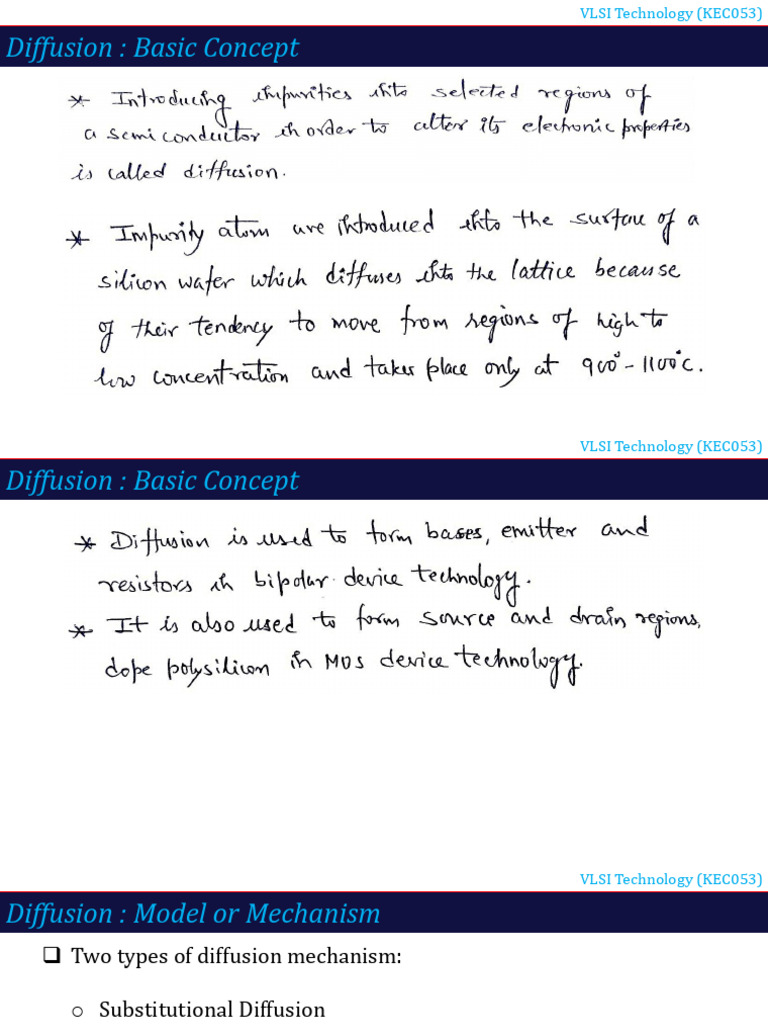 VLSI Technology (KEC053)
Diffusion : Basic Concept
* Introducing impurities into selected regions of
a semiconductor in order to alter its electronic properties
is called diffusion.
* Impurity atom are introduced into the surface of a
silicon wafer which diffuses into the lattice because
of their tendency to move from regions of high to
low concentration and takes place only at 900° - 1100°c.
VLSI Technology (KEC053)
Diffusion : Basic Concept
* Diffusion is used to form bases, emitter and
resistors in bipolar device technology.
* It is also used to form source and drain regions,
dope polysilicon in MOS device technology.
VLSI Technology (KEC053)
Diffusion : Model or Mechanism
❑ Two types of diffusion mechanism:
o Substitutional Diffusion